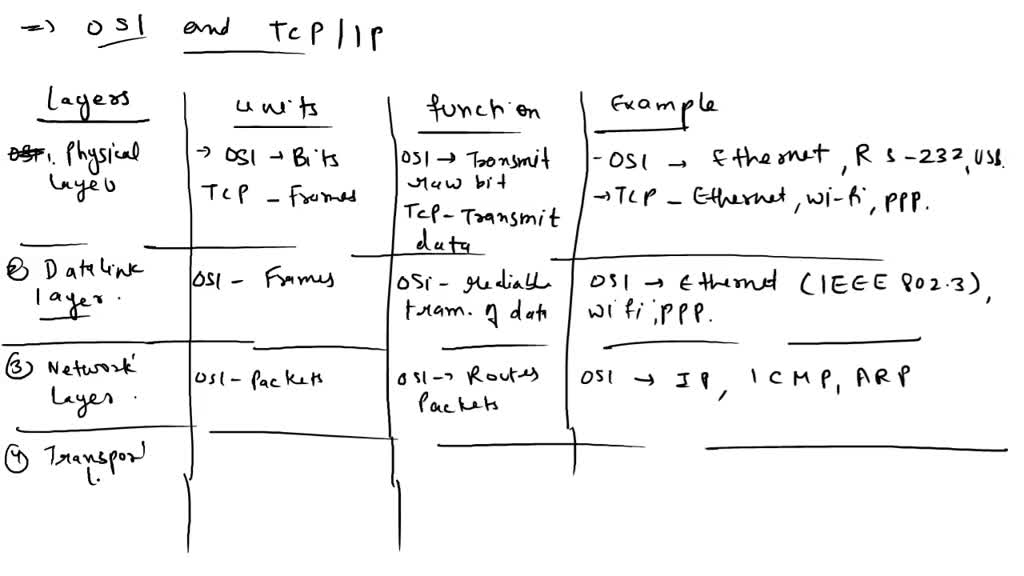 => OSI and TCP/IP
Layers units function Example
1. Physical Layer
→ OSI → Bits
TCP - Frames
OSI → Transmit
raw bit
TCP - Transmit
data
- OSI → Ethernet, RS-232, USB.
→ TCP - Ethernet, wi-fi, PPP.
② Datalink
layer.
OSI - Frames
OSI - reliable
tram. of data
OSI → Ethernet (IEEE 802.3),
wifi, PPP.
③ Network
Layer.
OSI - Packets
OSI → Routes
Packets
OSI → IP, ICMP, ARP
④ Transport
L.